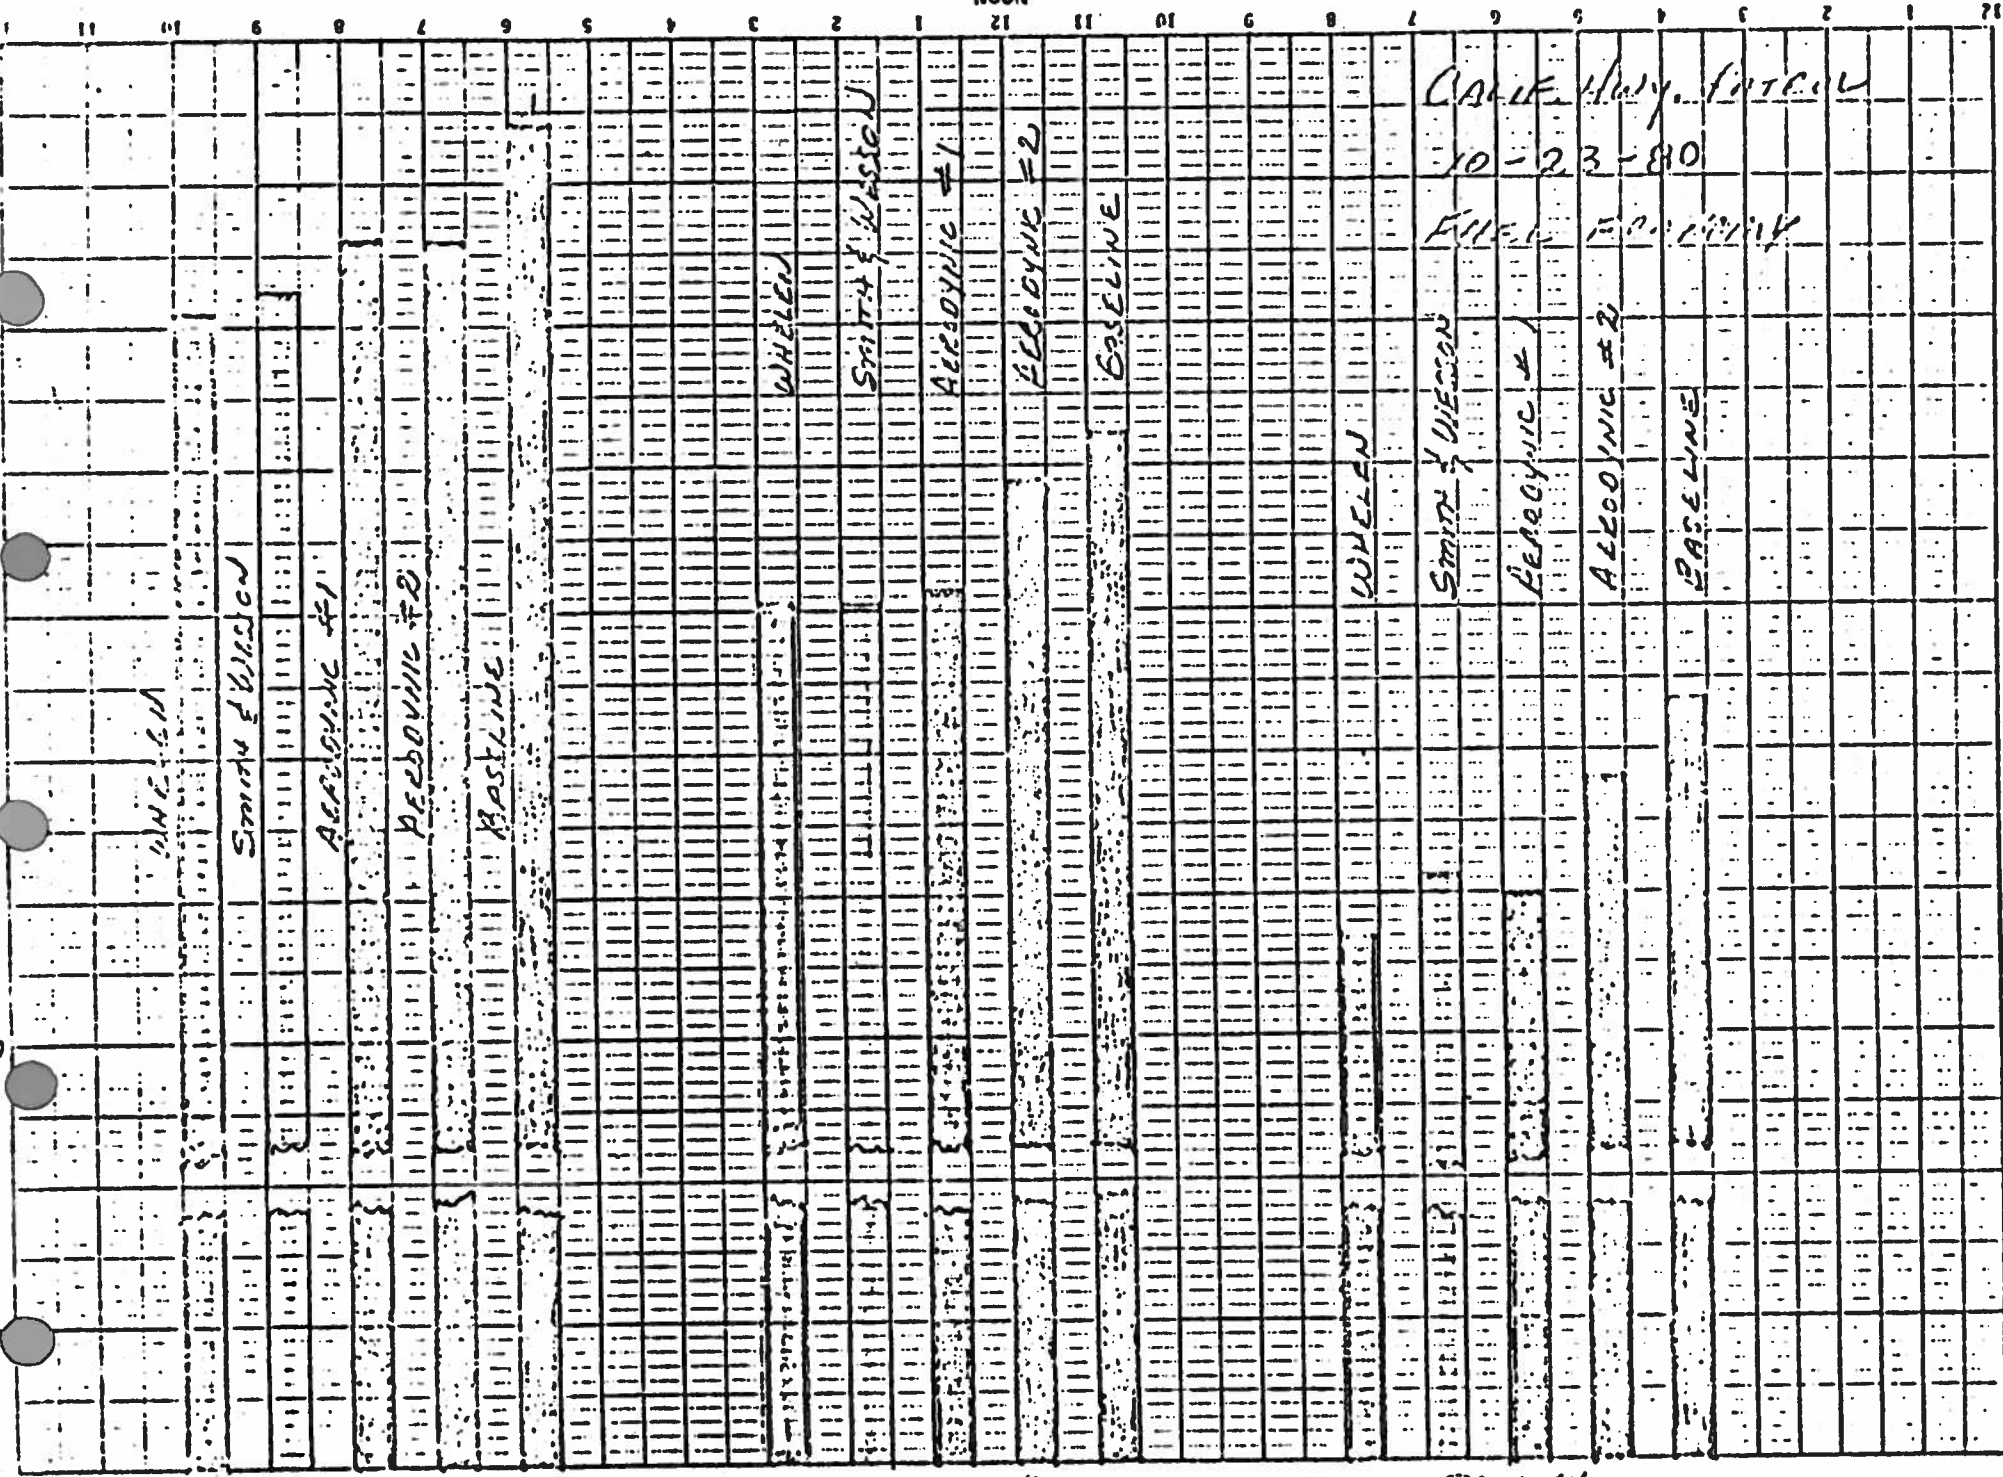 NOON
11 10 9 8 7 6 5 4 3 2 1 12 11 10 9 8 7 6 5 4 3 2 1 12
CALIF. HWY. PATROL
10-23-80
FUEL ECONOMY
WHELEN
SMITH & WESSON
AERODYNIC #1
AERODYNIC #2
BASELINE
WHELEN
SMITH & WESSON
AERODYNIC #1
AERODYNIC #2
BASELINE
WHELEN
SMITH & WESSON
AERODYNIC #1
AERODYNIC #2
BASELINE